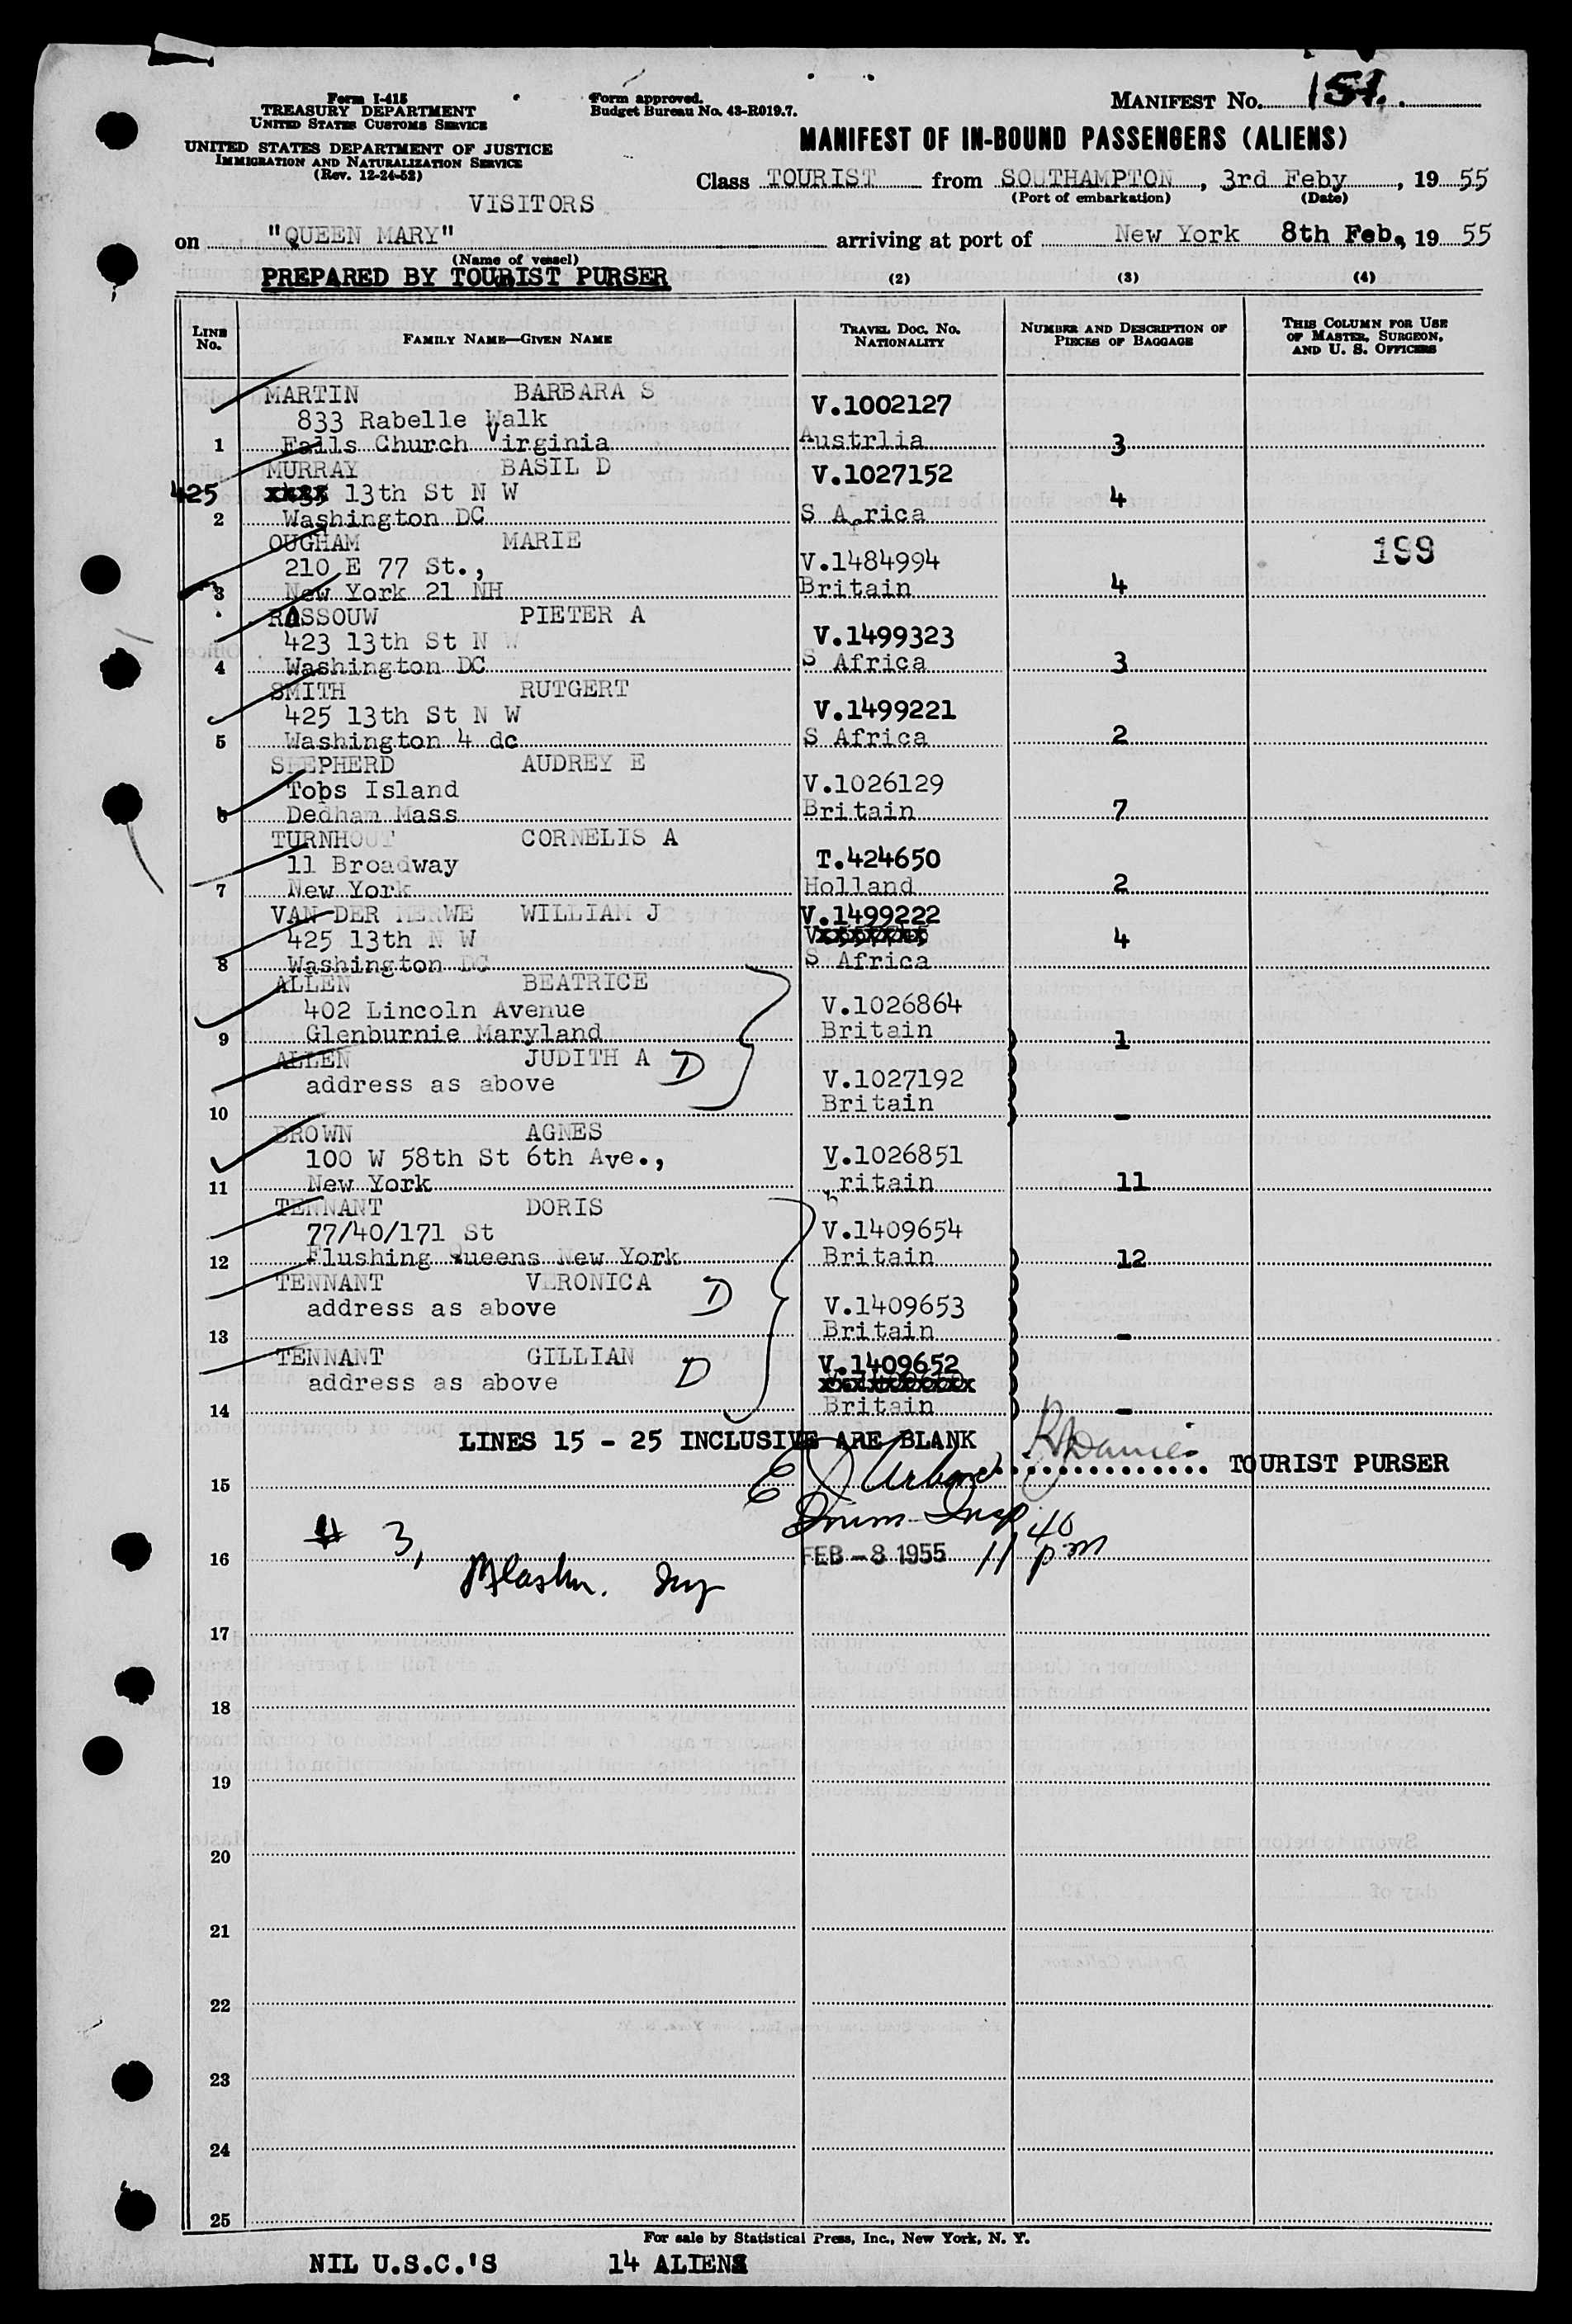 Form I-415
TREASURY DEPARTMENT
UNITED STATES CUSTOMS SERVICE
UNITED STATES DEPARTMENT OF JUSTICE
IMMIGRATION AND NATURALIZATION SERVICE
(Rev. 12-24-52)
Form approved.
Budget Bureau No. 43-R019.7.
MANIFEST No. 151.
MANIFEST OF IN-BOUND PASSENGERS (ALIENS)
Class TOURIST from SOUTHAMPTON, 3rd Feby, 19 55
(Port of embarkation) (Date)
VISITORS
on "QUEEN MARY" arriving at port of New York 8th Feb., 19 55
(Name of vessel)
PREPARED BY TOURIST PURSER (2) (3) (4)
LINE No. FAMILY NAME—GIVEN NAME TRAVEL DOC. NO. NATIONALITY NUMBER AND DESCRIPTION OF PIECES OF BAGGAGE THIS COLUMN FOR USE OF MASTER, SURGEON, AND U. S. OFFICERS
MARTIN BARBARA S
833 Rabelle Walk V.1002127
1 Falls Church Virginia Austrlia 3
MURRAY BASIL D V.1027152
425 13th St N W 4
2 Washington DC S Africa
OUGHAM MARIE 199
210 E 77 St., V.1484994
3 New York 21 NH Britain 4
ROSSOUW PIETER A
423 13th St N W V.1499323
4 Washington DC S Africa 3
SMITH RUTGERT
425 13th St N W V.1499221
5 Washington 4 dc S Africa 2
SHEPHERD AUDREY E
Tobs Island V.1026129
6 Dedham Mass Britain 7
TURNHOUT CORNELIS A
11 Broadway T.424650
7 New York Holland 2
VAN DER MERWE WILLIAM J V.1499222
425 13th N W 4
8 Washington DC S Africa
ALLEN BEATRICE
402 Lincoln Avenue V.1026864
9 Glenburnie Maryland Britain 1
ALLEN JUDITH A D
address as above V.1027192
10 Britain -
BROWN AGNES
100 W 58th St 6th Ave., V.1026851
11 New York ritain 11
TENNANT DORIS
77/40/171 St V.1409654
12 Flushing Queens New York Britain 12
TENNANT VERONICA D
address as above V.1409653
13 Britain -
TENNANT GILLIAN D V.1409652
address as above
14 Britain -
LINES 15 - 25 INCLUSIVE ARE BLANK
TOURIST PURSER
15
# 3,
Imm Insp
16 FEB -8 1955 11 40 pm
17
18
19
20
21
22
23
24
25
For sale by Statistical Press, Inc., New York, N. Y.
NIL U.S.C.'S 14 ALIENS